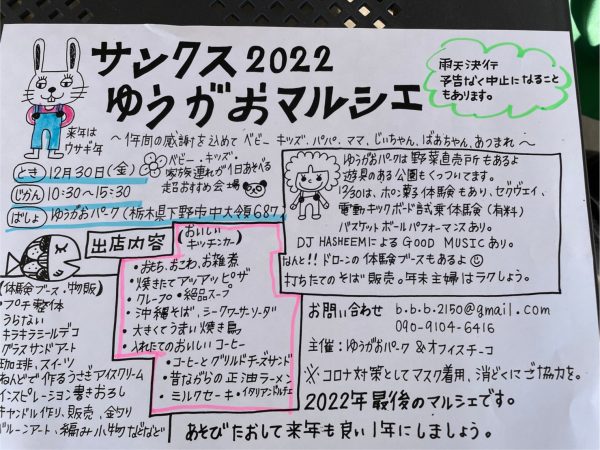 サンクス2022
ゆうがおマルシェ
雨天決行
予告なく中止になること
もあります。
来年は
ウサギ年
〜1年間の感謝を込めて ベビー、キッズ、パパ、ママ、じいちゃん、ばあちゃん、あつまれ〜
とき 12月30日(金)
じかん 10:30〜15:30
ばしょ ゆうがおパーク(栃木県下野市中大領687)
ベビー、キッズ、
家族連れが1日あそべる
超おすすめ会場
ゆうがおパークは野菜直売所もあるよ
遊具のある公園もくっついてます。
12/30は、ポン菓子体験もあり、セグウェイ、
電動キックボード試乗体験(有料)
バスケットボールパフォーマンスあり。
DJ HASHEEMによるGOOD MUSICあり。
なんと!!ドローンの体験ブースもあるよ
打ちたてのそば販売。年末主婦はラクしよう。
出店内容
(おいしい
キッチンカー)
・おもち、おこわ、お雑煮
・焼きたてアッアッピザ
・クレープ・絶品スープ
・沖縄そば、シークワーサーソーダ
・大きくてうまい焼き鳥
・入れたてのおいしいコーヒー
・コーヒーとグリルドチーズサンド
・昔ながらの正油ラーメン
・ミルクセーキ・イタリアンドルチェ
(体験ブース・物販)
・プチ整体
うらない
キラキラミールデコ
グラスサンドアート
珈琲、スイーツ
ねんどで作るうさぎアイスクリーム
インスピレーション書きおろし
キャンドル作り、販売、金釣り
バルーンアート、編み小物などなど
お問い合わせ b.b.b.2150@gmail.com
090-9104-6416
主催:ゆうがおパーク&オフィスチーコ
※コロナ対策としてマスク着用、消どくにご協力を。
2022年最後のマルシェです。
あそびたおして来年も良い1年にしましょう。